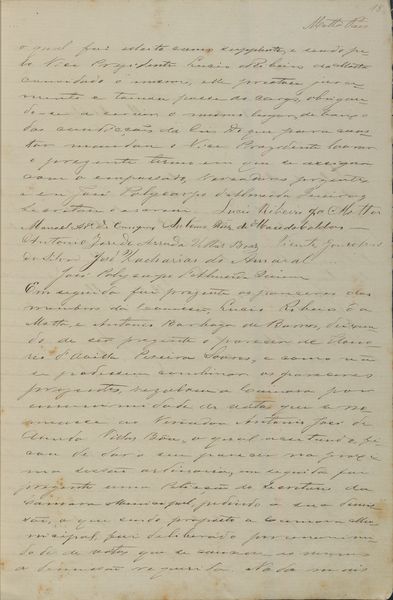 18
o qual foi eleito como supplente, e sendo pe-
lo Vice Prezidente Lucio Ribeiro da Motta
convidado o mesmo, elle prestou jura-
mento e tomou posse do cargo, obrigan
do-se a servir o mesmo lugar, debaixo
das condições da Lei do que para cons-
tar mandou o Vice Prezidente lavrar
o prezente termo em que se assignou
com o empossado, Vereadores prezentes
e eu José Polycarpo d'Almeida
Secretario o escrevi. Lucio Ribeiro da Motta
Manoel de Campos Antonio
Antonio José de Arruda Villas Boas Vicente
da Silva José Zacharias do Amaral
José Polycarpo d'Almeida
Em seguida foi prezente os pareceres dos
membros da Commissão, Lucio Ribeiro da
Motta, e Antonio Barboza de Barros, deixan
do de ser prezente o parecer de
Pereira Soares, e como não
se podessem combinar os pareceres
prezentes, rezolveu a Camara por
unanimidade de votos que se no-
measse ao Vereador Antonio José de
Arruda Villas Boas, o qual aceitando fi
cou de dar o seu parecer na proxi
ma sessão ordinaria, em seguida foi
prezente uma Petição do Secretario da
Camara Municipal, pedindo a sua demis
são, o que sendo proposto a Camara Mu-
nicipal, foi deliberado por unanimi
dade de votos que se
a demissão requerida. Nada mais